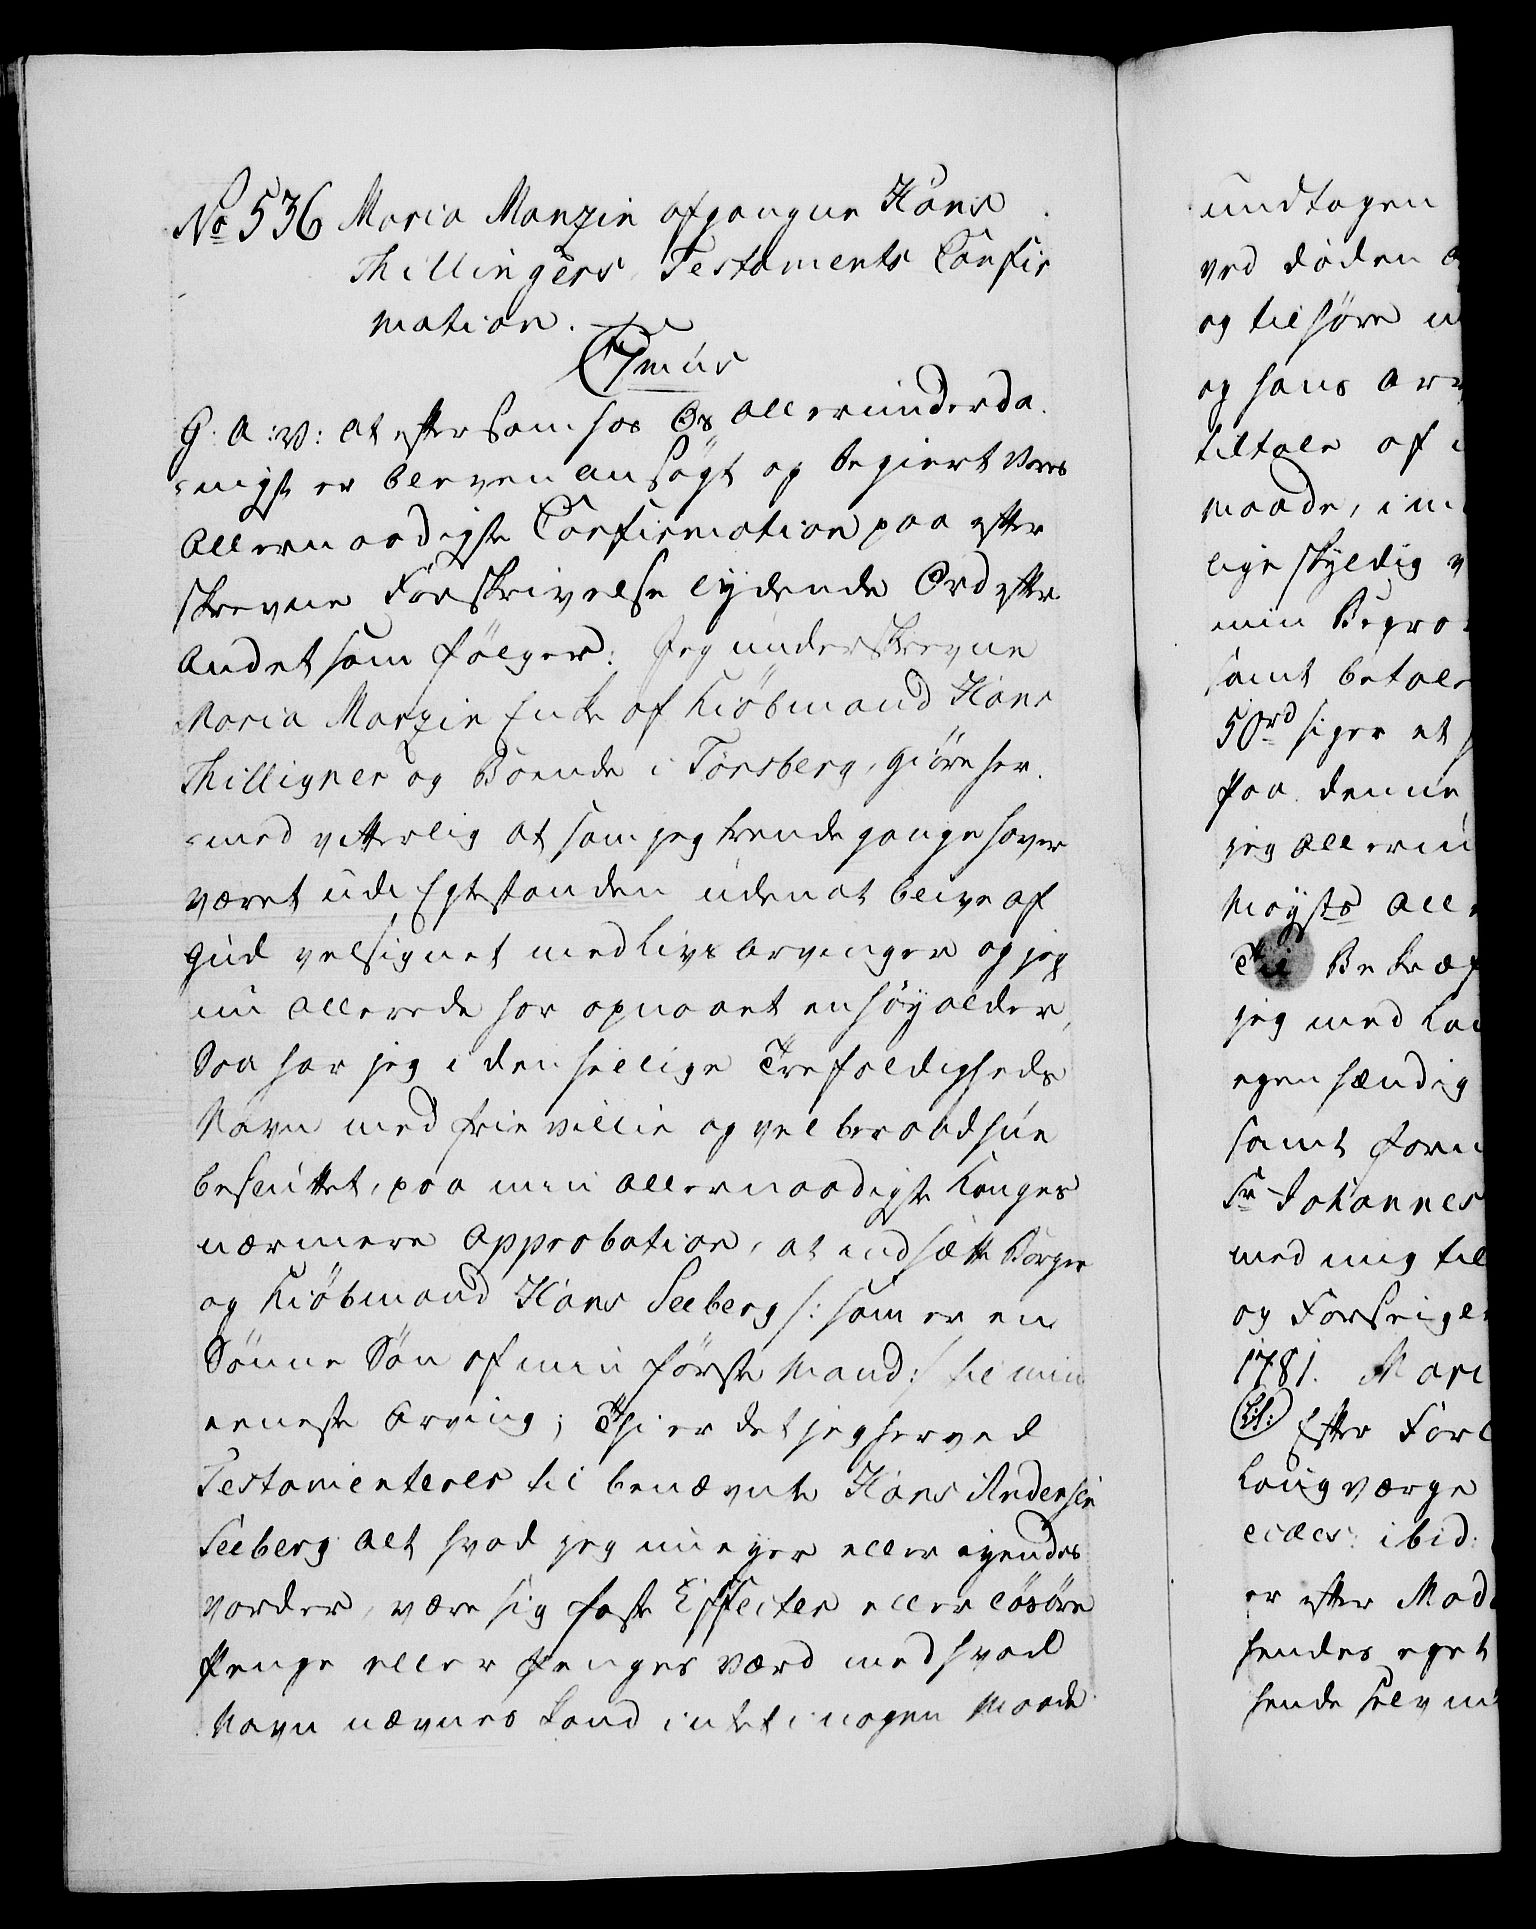 No 536 Maria Manzin afgangne Hans
Thillingers Testaments Confir
mation.
C7mus
G: A: V: at eftersom hos Os allerunderda.
-nigst er bleven ansøgt og begiert Vores
Allernaadigste Confirmation paa efter
skrevne Forskrivelse lydende Ord efter
Andet som følger: Jeg underskrevne
Maria Manzin Enke af Kiøbmand Hans
Thilligner og Boende i Tønsberg, giøre her.
-med vitterlig at som jeg trende gange haver
været udi Egtestanden uden at blive af
Gud velsignet med Livs Arvinger og jeg
nu allerede har opnaaet en høy alder,
Saa har jeg i den hellige Trefoldigheds
Navn med frie villie og vel beraad hue
besluttet, paa min allernaadigste Konges
nærmere Approbation, at indsætte Borger
og Kiøbmand Hans Seeberg /: som er en
Sønne Søn af min første Mand:/ til min
eneste Arving; Thi er det jeg herved
Testamenterer til benævnte Hans Andersen
Seeberg alt hvad jeg nu eyer eller eyendes
vorder, være sig faste Effecter eller løsøre
Penge eller Penges værd med hvad
Navn nævnes kand intet i nogen Maade
undtagen
ved døden
og tilhøre
og hans
tiltale af
maade,
lige skyldig
min
samt
50rd siger et
Paa denne
jeg
Mayts
Til
jeg med
egenhændig
samt
Sr Johannes
med mig til
og
1781.
(L:S:) Efter
Laugværge
ibid:
er efter
hendes eget
hende selv